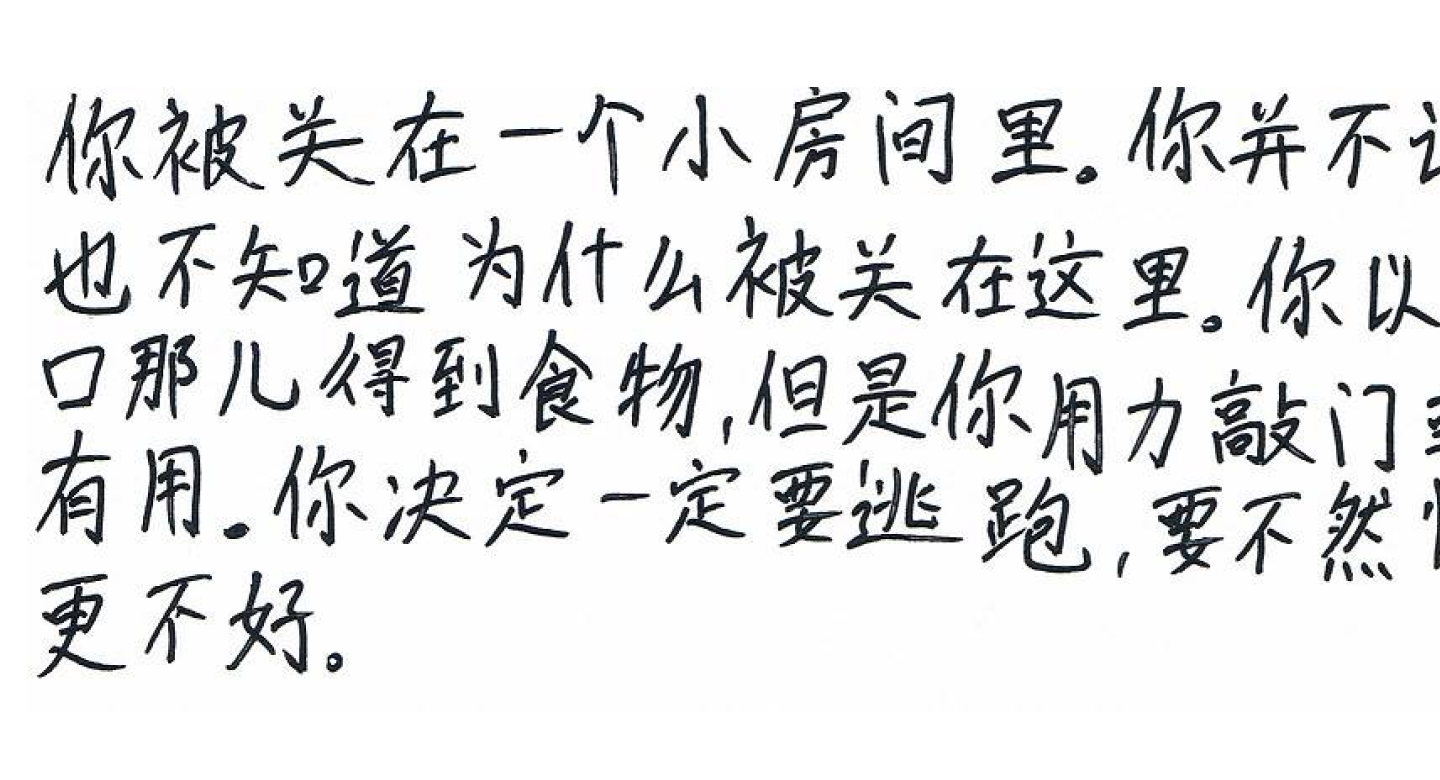 你被关在一个小房间里。你并不
也不知道为什么被关在这里。你以
口那儿得到食物,但是你用力敲门
有用。你决定一定要逃跑,要不然
更不好。